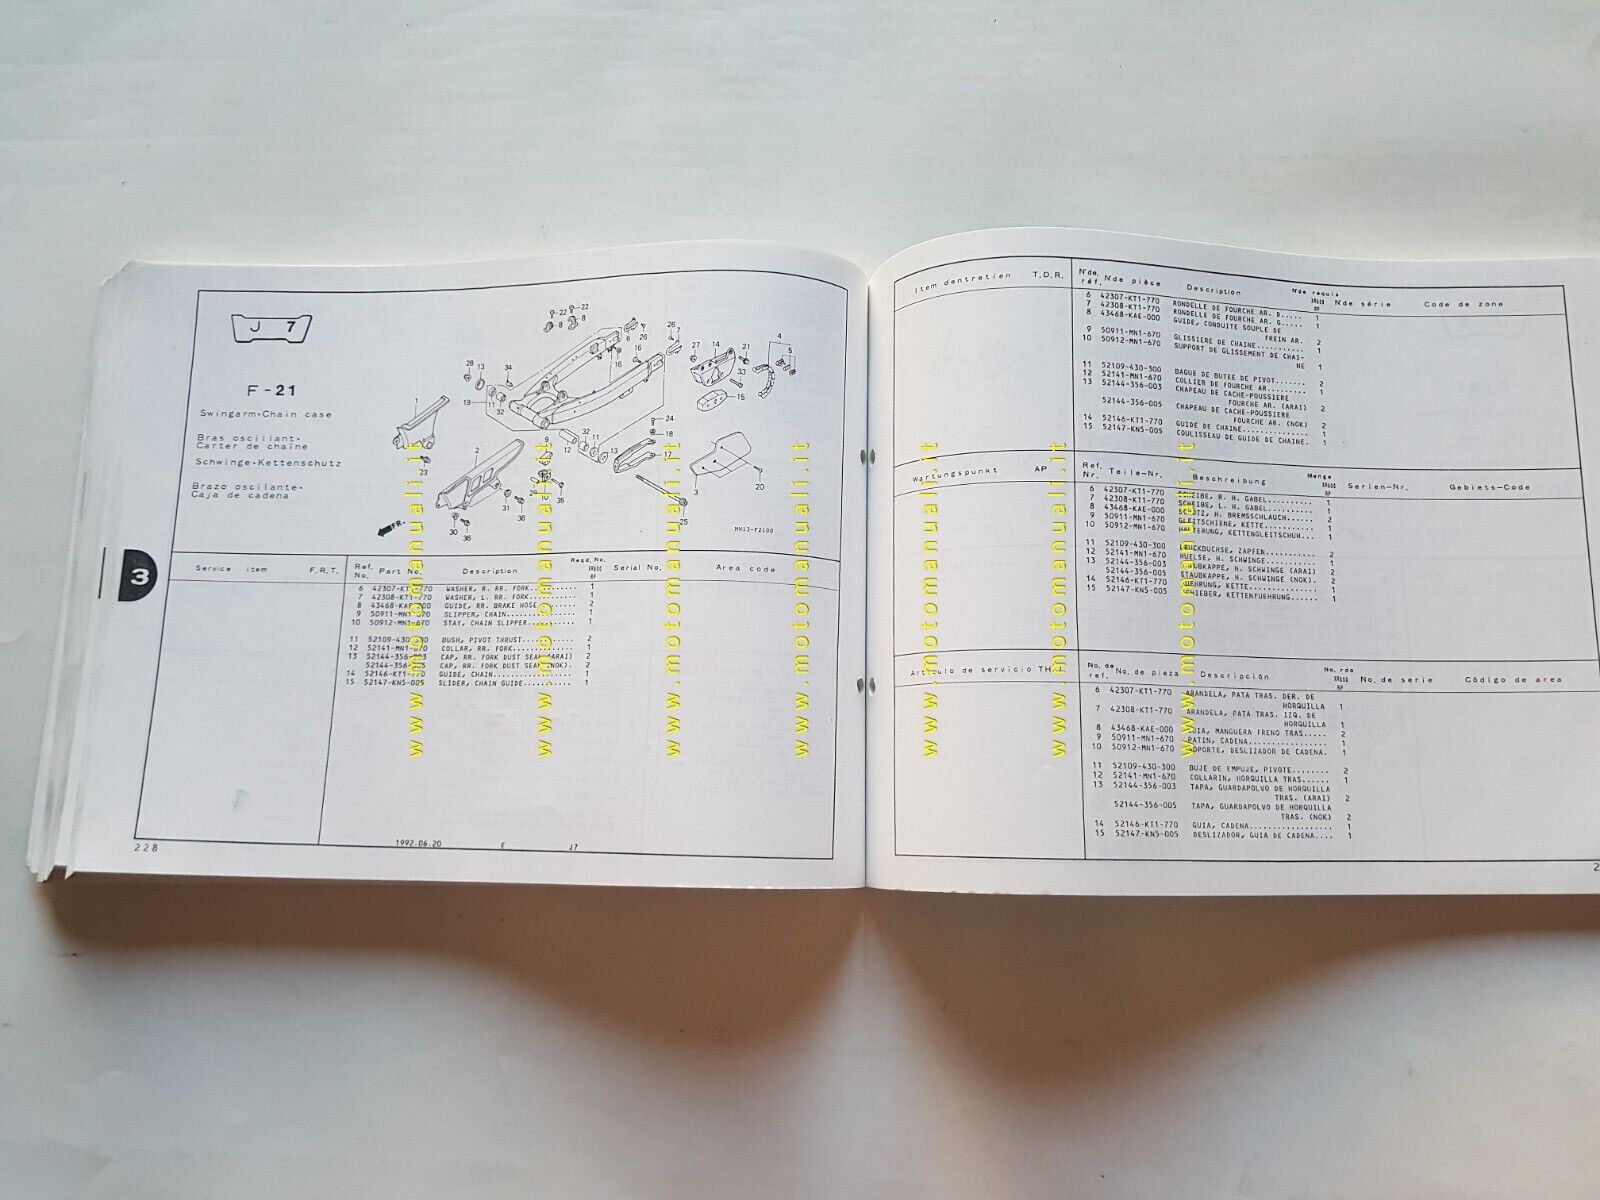 J 7
F-21
Swingarm·Chain case
Bras oscillant·
Carter de chaîne
Schwinge·Kettenschutz
Brazo oscilante·
Caja de cadena
MN13-F2100
FR.
3
Service item F.R.T. Ref. No. Part No. Description Reqd. No. XR600 RP Serial No. Area code
6 42307-KT1-770 WASHER, R. RR. FORK........... 1
7 42308-KT1-770 WASHER, L. RR. FORK........... 1
8 43468-KAE-000 GUIDE, RR. BRAKE HOSE......... 2
9 50911-MN1-670 SLIPPER, CHAIN................ 1
10 50912-MN1-670 STAY, CHAIN SLIPPER........... 1
11 52109-430-300 BUSH, PIVOT THRUST............ 2
12 52141-MN1-670 COLLAR, RR. FORK.............. 1
13 52144-356-003 CAP, RR. FORK DUST SEAL (ARAI) 2
52144-356-005 CAP, RR. FORK DUST SEAL (NOK). 2
14 52146-KT1-770 GUIDE, CHAIN.................. 1
15 52147-KN5-005 SLIDER, CHAIN GUIDE........... 1
228
1992.06.20 E J7
Item d'entretien T.D.R. N'de. réf. N'de pièce Description N'de requis XR600 RP N'de série Code de zone
6 42307-KT1-770 RONDELLE DE FOURCHE AR. D..... 1
7 42308-KT1-770 RONDELLE DE FOURCHE AR. G..... 1
8 43468-KAE-000 GUIDE, CONDUITE SOUPLE DE
FREIN AR. 2
9 50911-MN1-670 GLISSIERE DE CHAINE........... 1
10 50912-MN1-670 SUPPORT DE GLISSEMENT DE CHAI-
NE 1
11 52109-430-300 BAGUE DE BUTEE DE PIVOT....... 2
12 52141-MN1-670 COLLIER DE FOURCHE AR......... 1
13 52144-356-003 CHAPEAU DE CACHE-POUSSIERE
FOURCHE AR. (ARAI) 2
52144-356-005 CHAPEAU DE CACHE-POUSSIERE
FOURCHE AR. (NOK) 2
14 52146-KT1-770 GUIDE DE CHAINE............... 1
15 52147-KN5-005 COULISSEAU DE GUIDE DE CHAINE. 1
Wartungspunkt AP Ref. Nr. Teile-Nr. Beschreibung Menge XR600 RP Serien-Nr. Gebiets-Code
6 42307-KT1-770 SCHEIBE, R. H. GABEL.......... 1
7 42308-KT1-770 SCHEIBE, L. H. GABEL.......... 1
8 43468-KAE-000 SCHUTZ, H. BREMSSCHLAUCH...... 2
9 50911-MN1-670 GLEITSCHIENE, KETTE........... 1
10 50912-MN1-670 HALTERUNG, KETTENGLEITSCHUH... 1
11 52109-430-300 DRUCKBUCHSE, ZAPFEN........... 2
12 52141-MN1-670 HUELSE, H. SCHWINGE........... 1
13 52144-356-003 STAUBKAPPE, H. SCHWINGE (ARAI) 2
52144-356-005 STAUBKAPPE, H. SCHWINGE (NOK). 2
14 52146-KT1-770 FUEHRUNG, KETTE............... 1
15 52147-KN5-005 SCHIEBER, KETTENFUEHRUNG...... 1
Artículo de servicio No. de ref. No. de pieza Descripción No. rdo XR600 RP No. de serie Código de area
6 42307-KT1-770 ARANDELA, PATA TRAS. DER. DE
HORQUILLA 1
7 42308-KT1-770 ARANDELA, PATA TRAS. IZQ. DE
HORQUILLA 1
8 43468-KAE-000 GUIA, MANGUERA FRENO TRAS..... 2
9 50911-MN1-670 PATIN, CADENA................. 1
10 50912-MN1-670 SOPORTE, DESLIZADOR DE CADENA. 1
11 52109-430-300 BUJE DE EMPUJE, PIVOTE........ 2
12 52141-MN1-670 COLLARIN, HORQUILLA TRAS...... 1
13 52144-356-003 TAPA, GUARDAPOLVO DE HORQUILLA
TRAS. (ARAI) 2
52144-356-005 TAPA, GUARDAPOLVO DE HORQUILLA
TRAS. (NOK) 2
14 52146-KT1-770 GUIA, CADENA.................. 1
15 52147-KN5-005 DESLIZADOR, GUIA DE CADENA.... 1
www.motomanuali.it
www.motomanuali.it
www.motomanuali.it
www.motomanuali.it
www.motomanuali.it
www.motomanuali.it
www.motomanuali.it